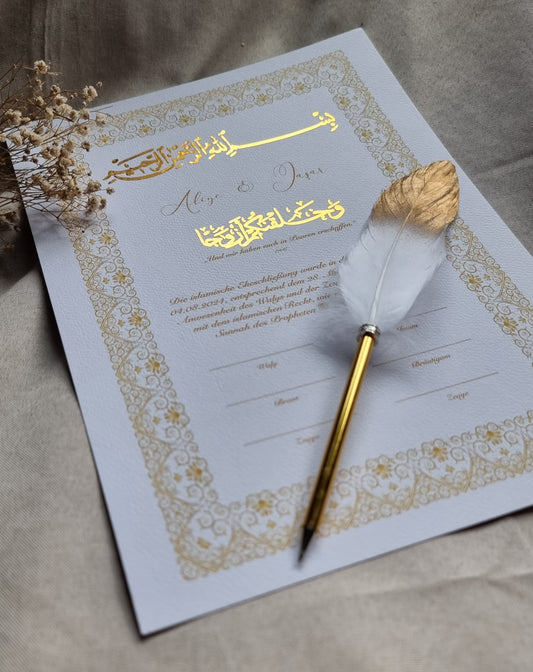 بسم الله الرحمن الرحيم
Alize & Yasar
وخلقنكم ازوجا
"Und wir haben euch in Paaren erschaffen."
Die islamische Eheschließung wurde in d
04.08.2024, entsprechend dem 28.
Anwesenheit des Walys und der Ze
mit dem islamischen Recht, wie
Sunnah des Propheten
Waly Imam
Braut Bräutigam
Zeuge Zeuge